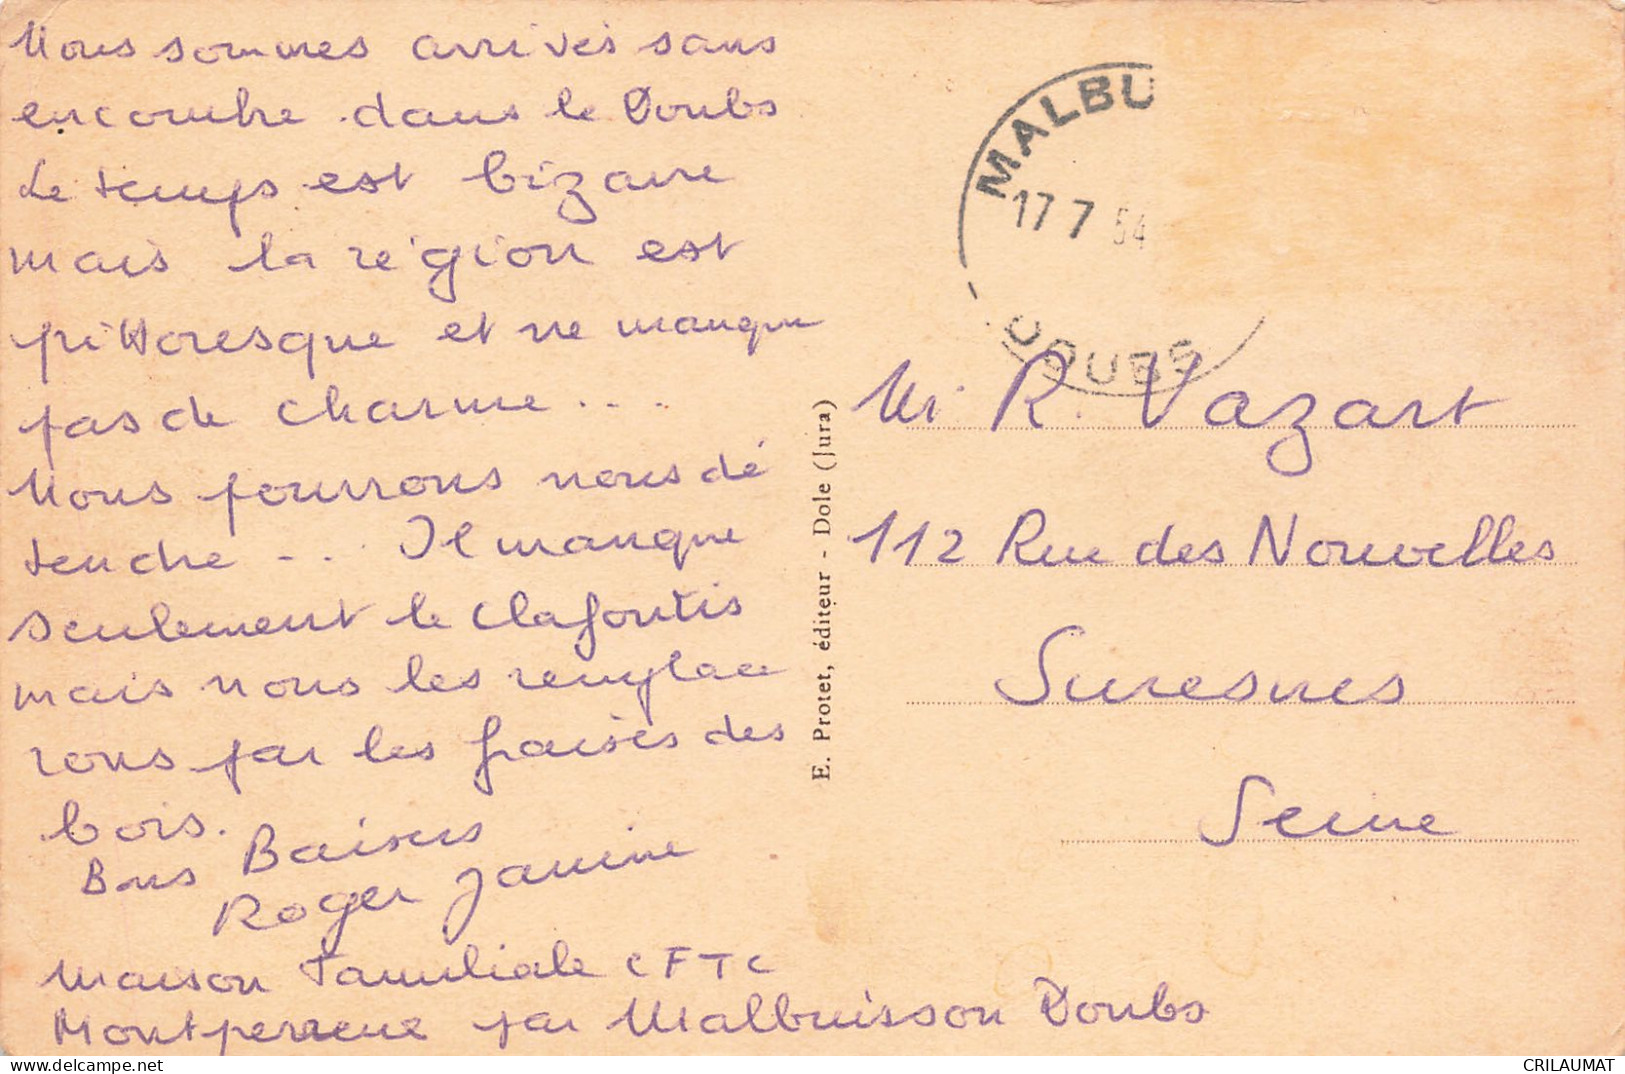 Nous sommes arrivés sans
encombre dans le Doubs
Le temps est bizarre
mais la région est
pittoresque et ne manque
pas de charme...
Nous pourrons nous dé
tendre ... Il manque
seulement le clafoutis
mais nous les remplace
rons par les fraises des
bois.
Bons Baisers
Roger Janine
Maison Familiale CFTC
Montperreux par Malbuisson Doubs
E. Protet, éditeur - Dole (Jura)
MALBU
17 7 54
DOUBS
M. R. Vazart
112 Rue des Nouvelles
Suresnes
Seine
delcampe.net
CRILAUMAT